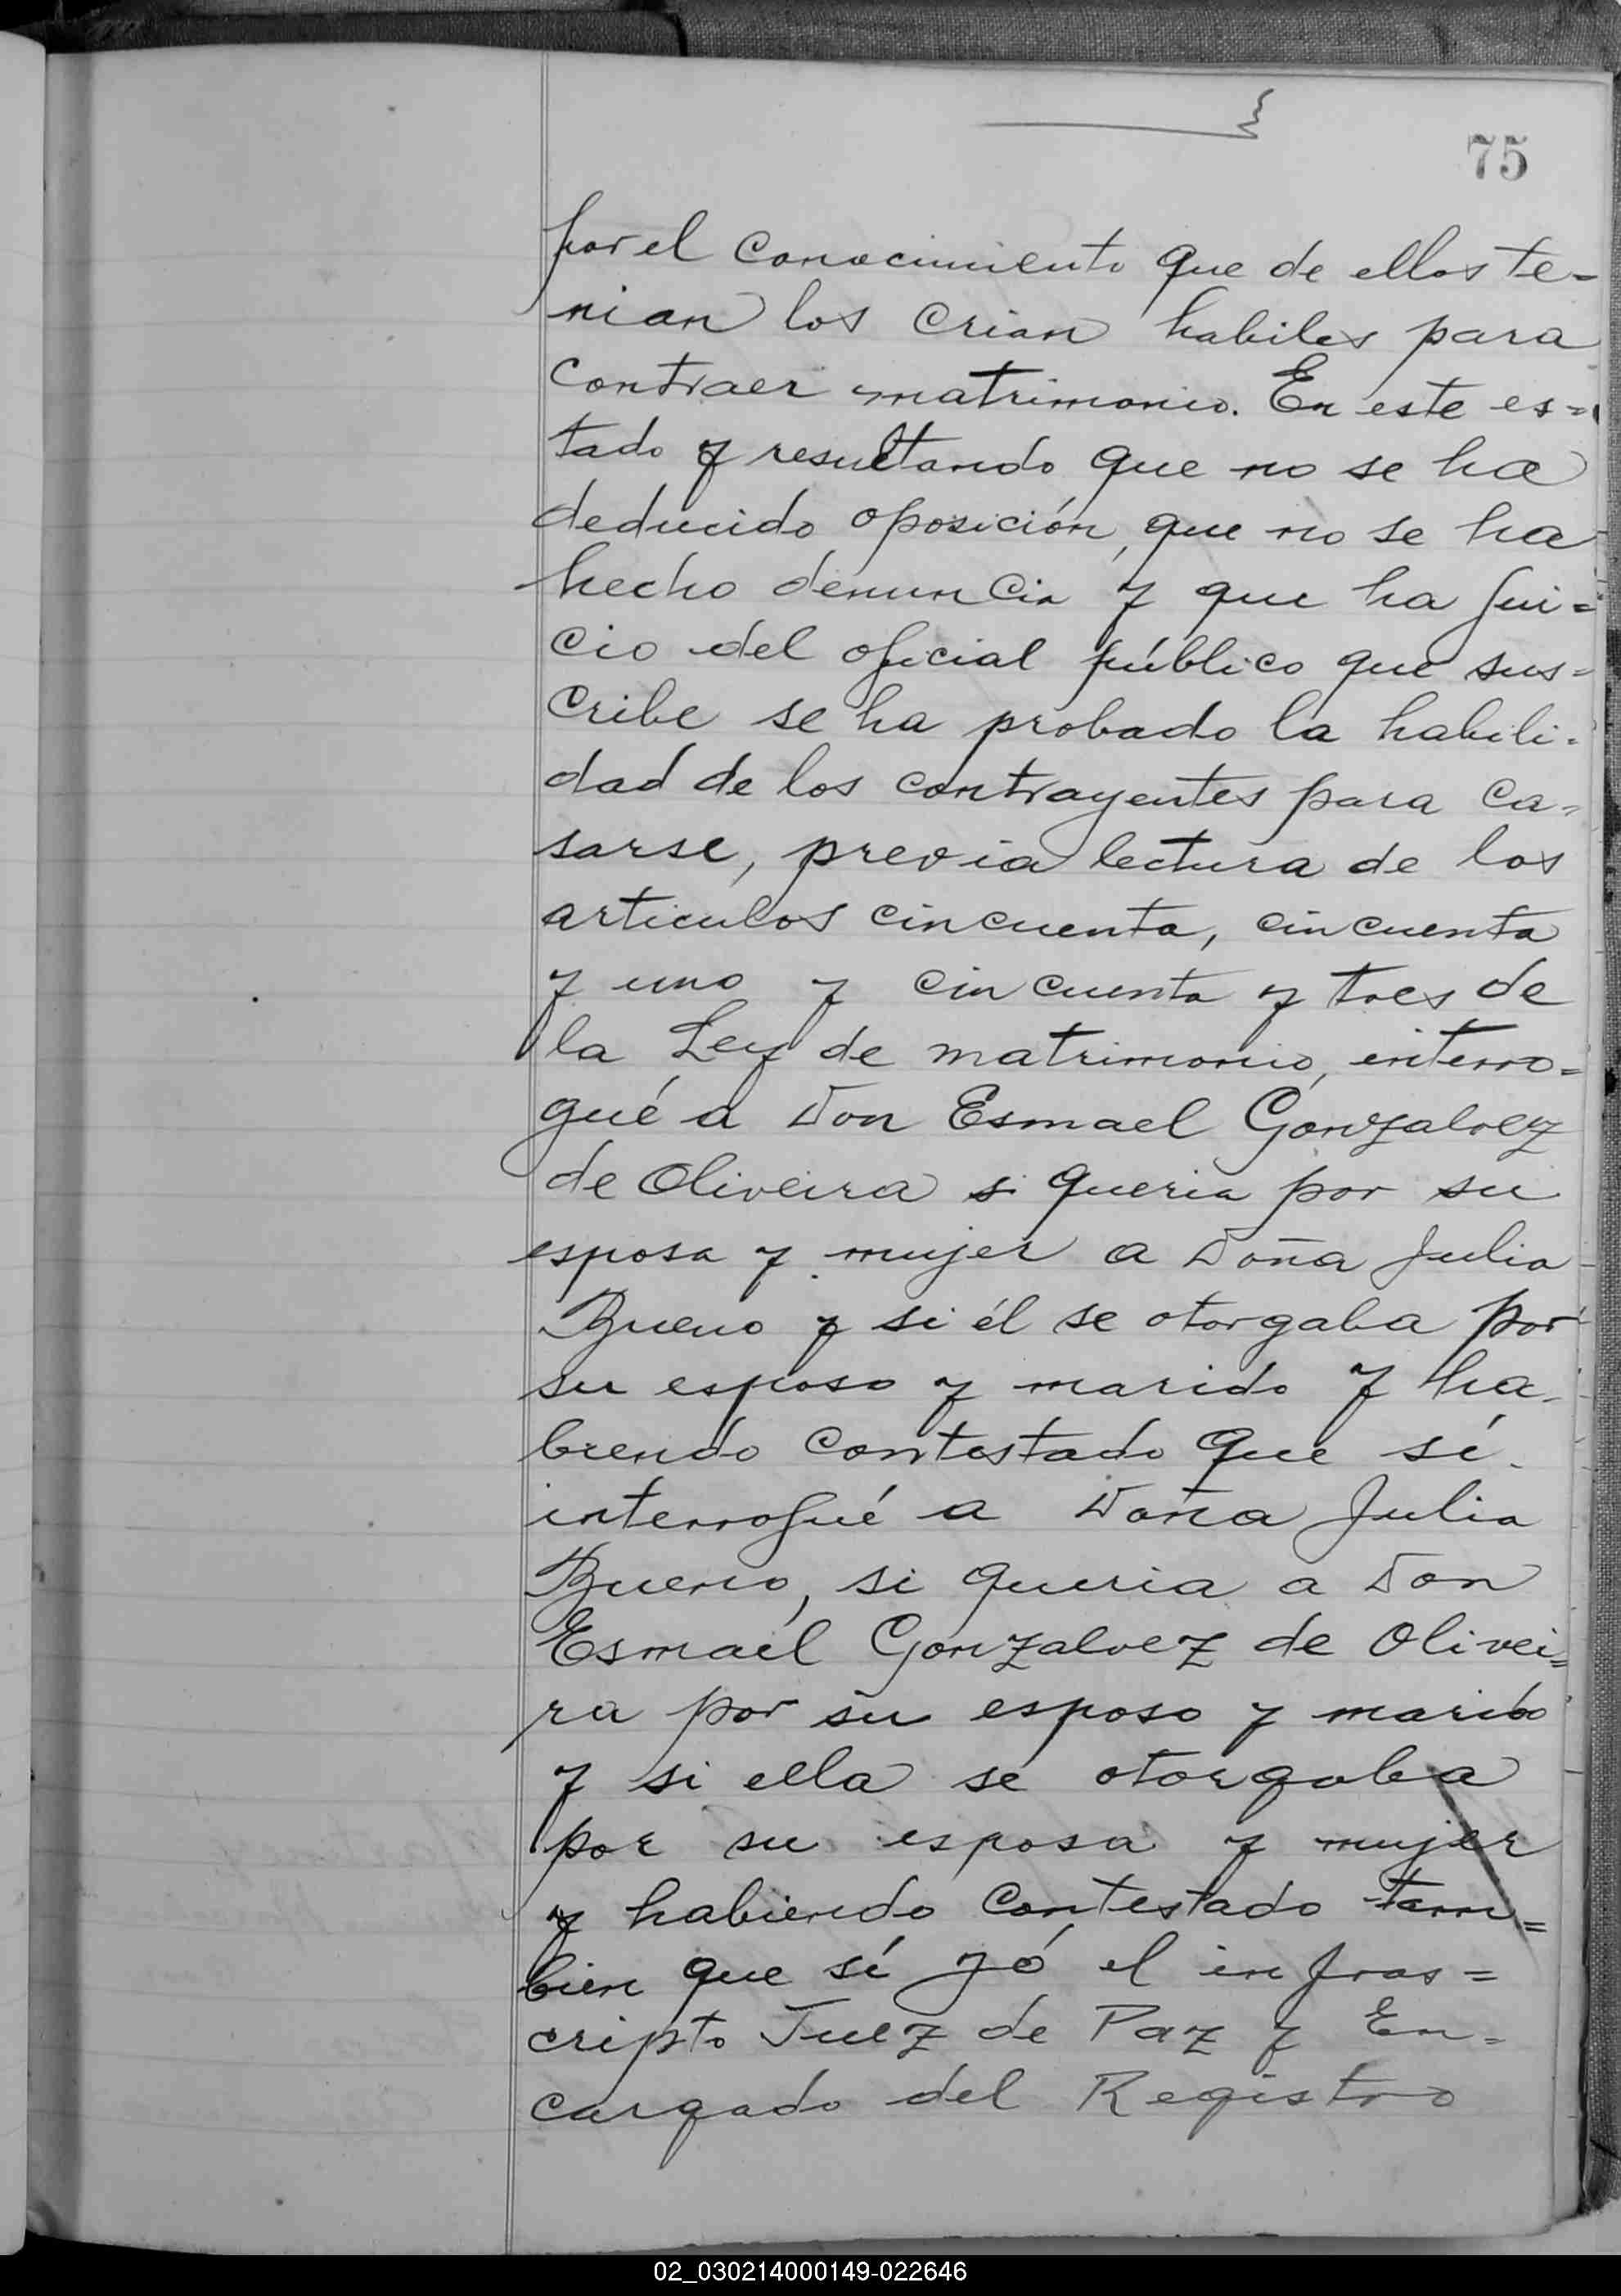 75
por el conocimiento que de ellos te=
nian los crian habiles para
contraer matrimonio. En este es=
tado y resultando que no se ha
deducido oposición, que no se ha
hecho denuncia y que ha jui=
cio del oficial público que sus=
cribe se ha probado la habili-
dad de los contrayentes para ca-
sarse, previa lectura de los
articulos cincuenta, cincuenta
y uno y cincuenta y tres de
la Ley de matrimonio, interro=
gué a Don Esmael Gonzalvez
de Oliveira si queria por su
esposa y mujer a Doña Julia
Bueno y si él se otorgaba por
su esposo y marido y ha-
biendo contestado que sí
interrogué a Doña Julia
Bueno, si queria a Don
Esmael Gonzalvez de Olivei=
ra por su esposo y marido
y si ella se otorgaba
por su esposa y mujer
y habiendo contestado tam=
bien que sí yó el infras=
cripto Juez de Paz y En-
cargado del Registro
02_030214000149-022646